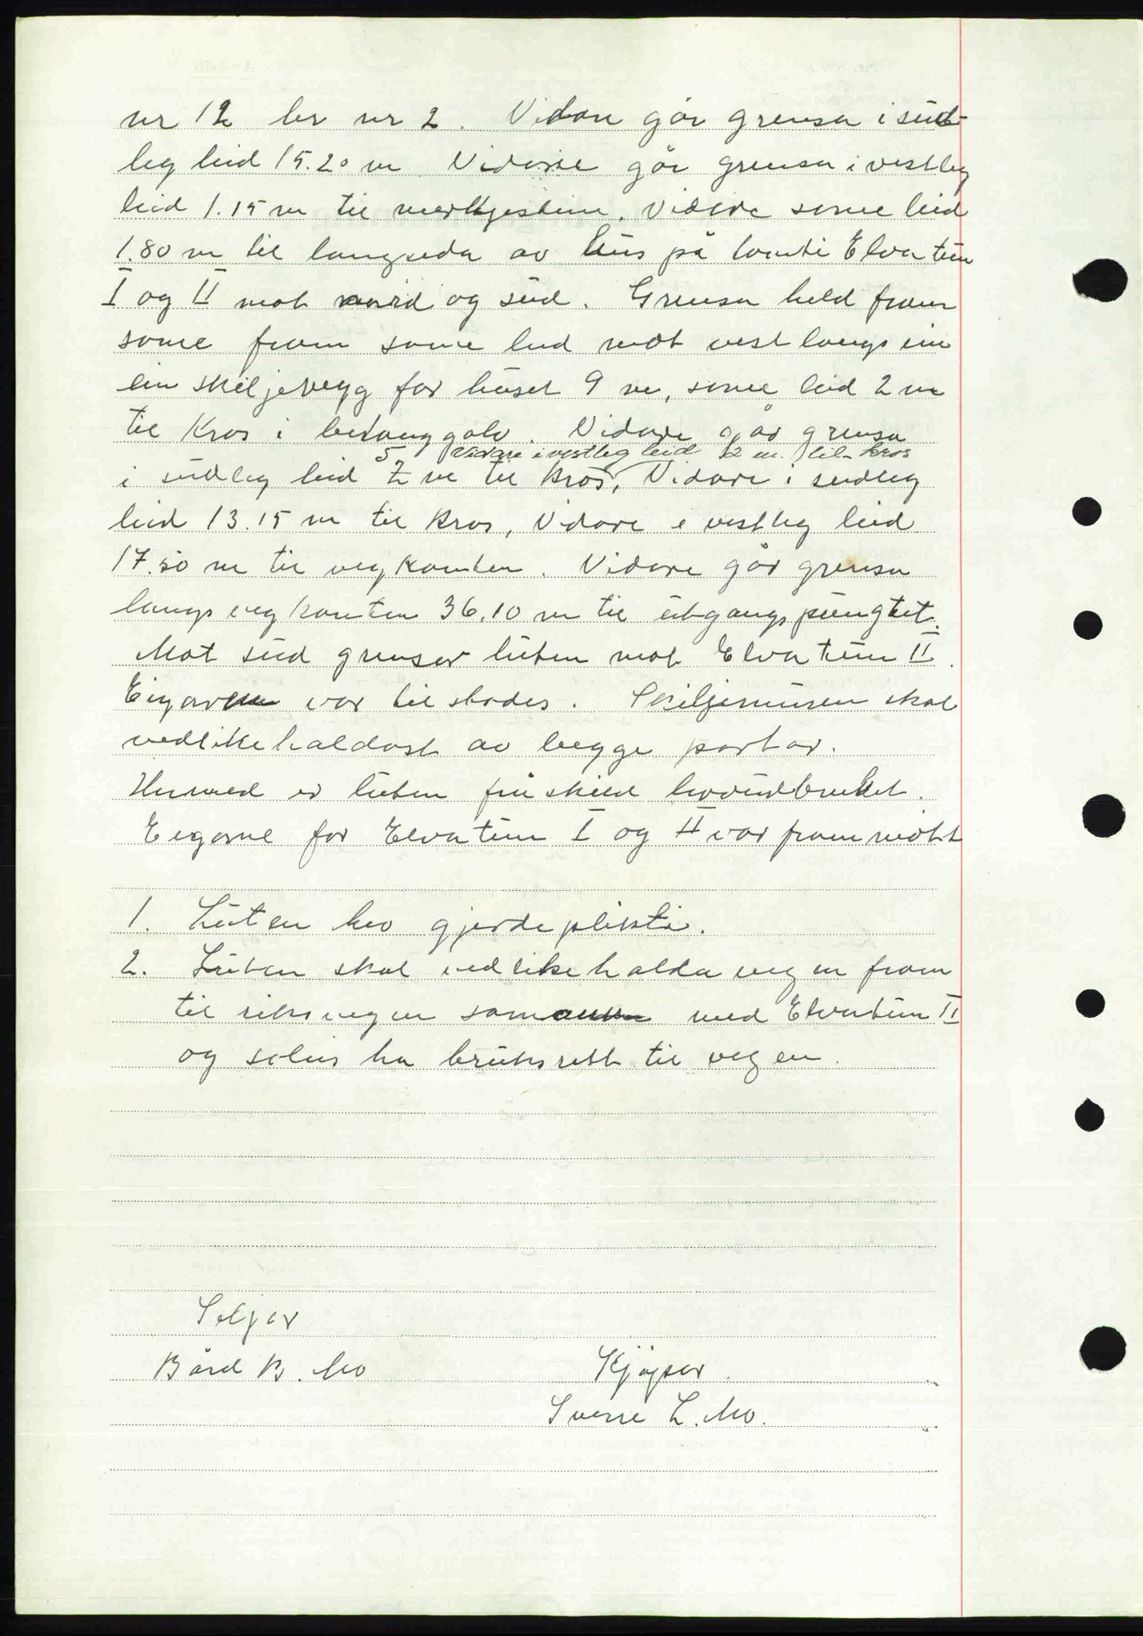 nr 12 br nr 2. Vidare går grensa i sud-
leg leid 15.20 m Vidare går grensa i vestleg
leid 1.15 m til merkjestein. Vidare some leid
1.80 m til langsida av hus på tomti Elvatun
I og II mot nord og sud. Grensa held fram
some fram some leid mot vest langs ein
ein skiljevegg for huset 9 m, some leid 2 m
til Kros i betonggolv. Vidare går grensa
5 Vidare i vestleg leid 12 m. til kros
i sudleg leid 2 m til Kros, Vidare i sudleg
leid 13.15 m til Kros, Vidare i vestleg leid
17.50 m til vegkanten. Vidare går grensa
langs vegkanten 36.10 m til utgangspungtet.
Mot sud grensar luten mot Elvatun II.
Eigaren var til stades. Skiljemuren skal
vedlikehaldast av begge partar.
Hermed er luten fråskild hovudbruket.
Eigarne for Elvatun I og II var frammøtt
1. Luten hev gjerdeplikti.
2. Luten skal vedlikehalda vegen fram
til riksvegen saman med Elvatun II
og solus ha bruksrett til vegen.
Seljar
Bård B. Mo Kjøpar.
Sverre L. Mo.